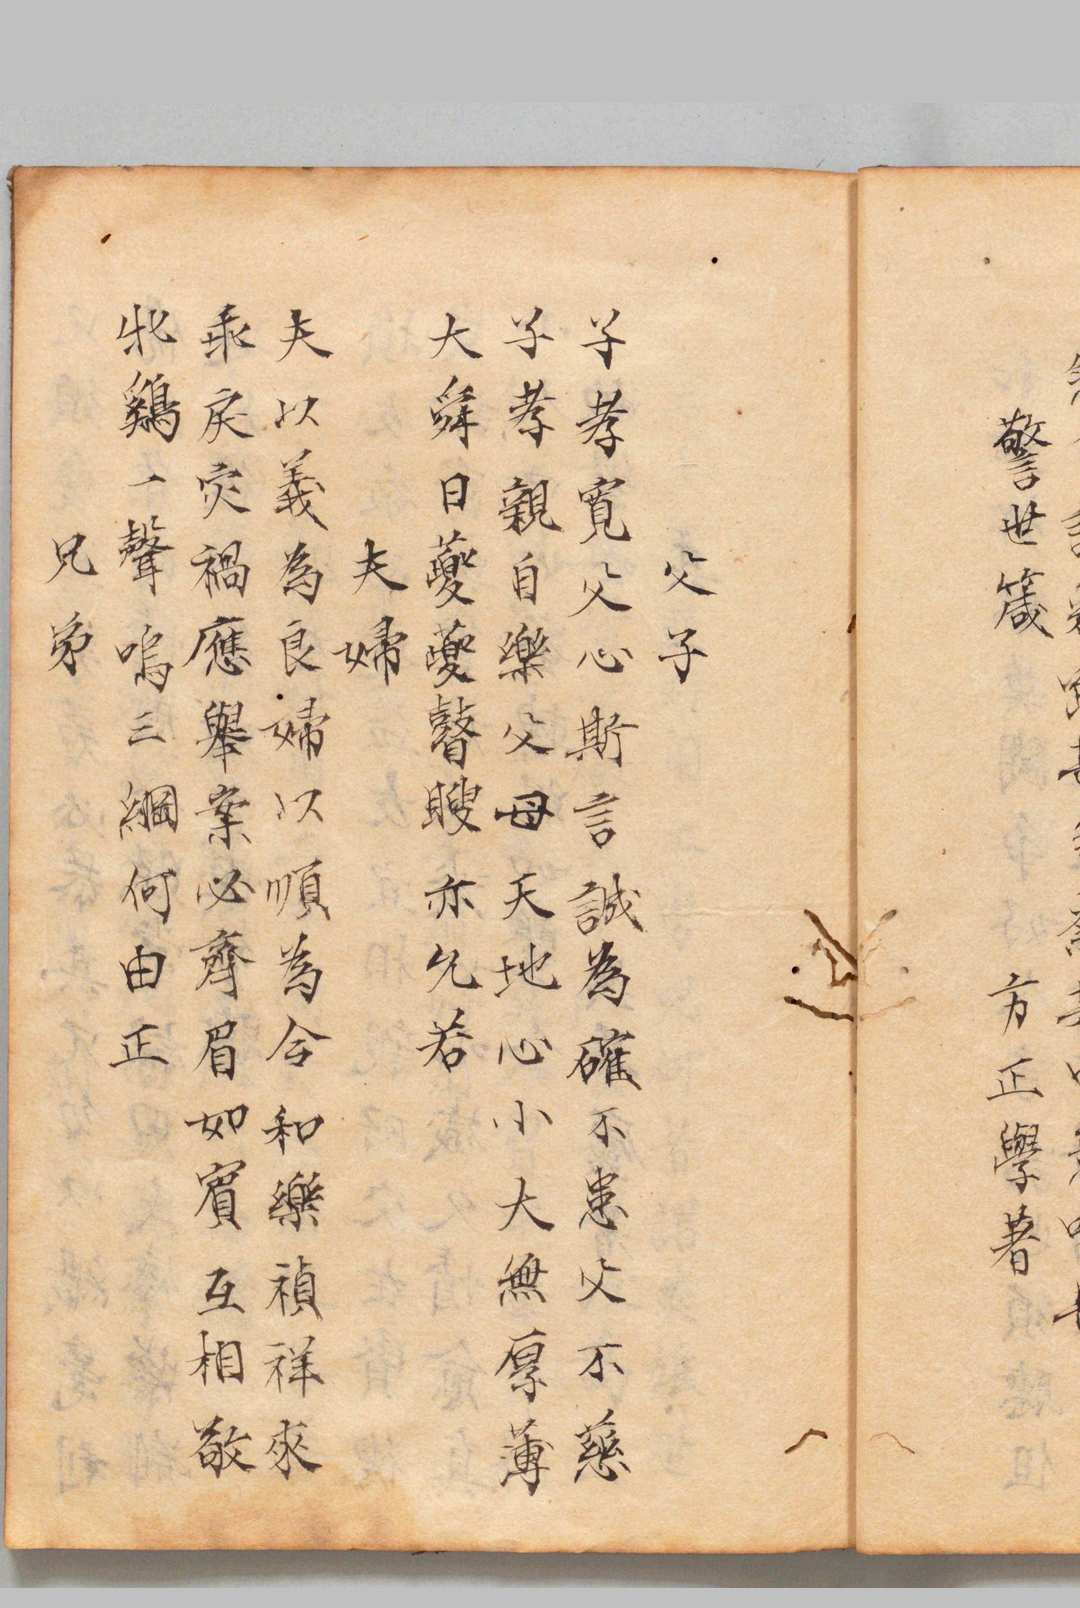 警世箴　方正學著
父子
子孝寬父心斯言誠為確不患父不慈
子孝親自樂父母天地心小大無厚薄
大舜日夔夔瞽瞍亦允若
夫婦
夫以義為良婦以順為令和樂禎祥來
乖戾灾禍應舉案必齊眉如賓互相敬
牝鷄一聲嗚三綱何由正
兄弟